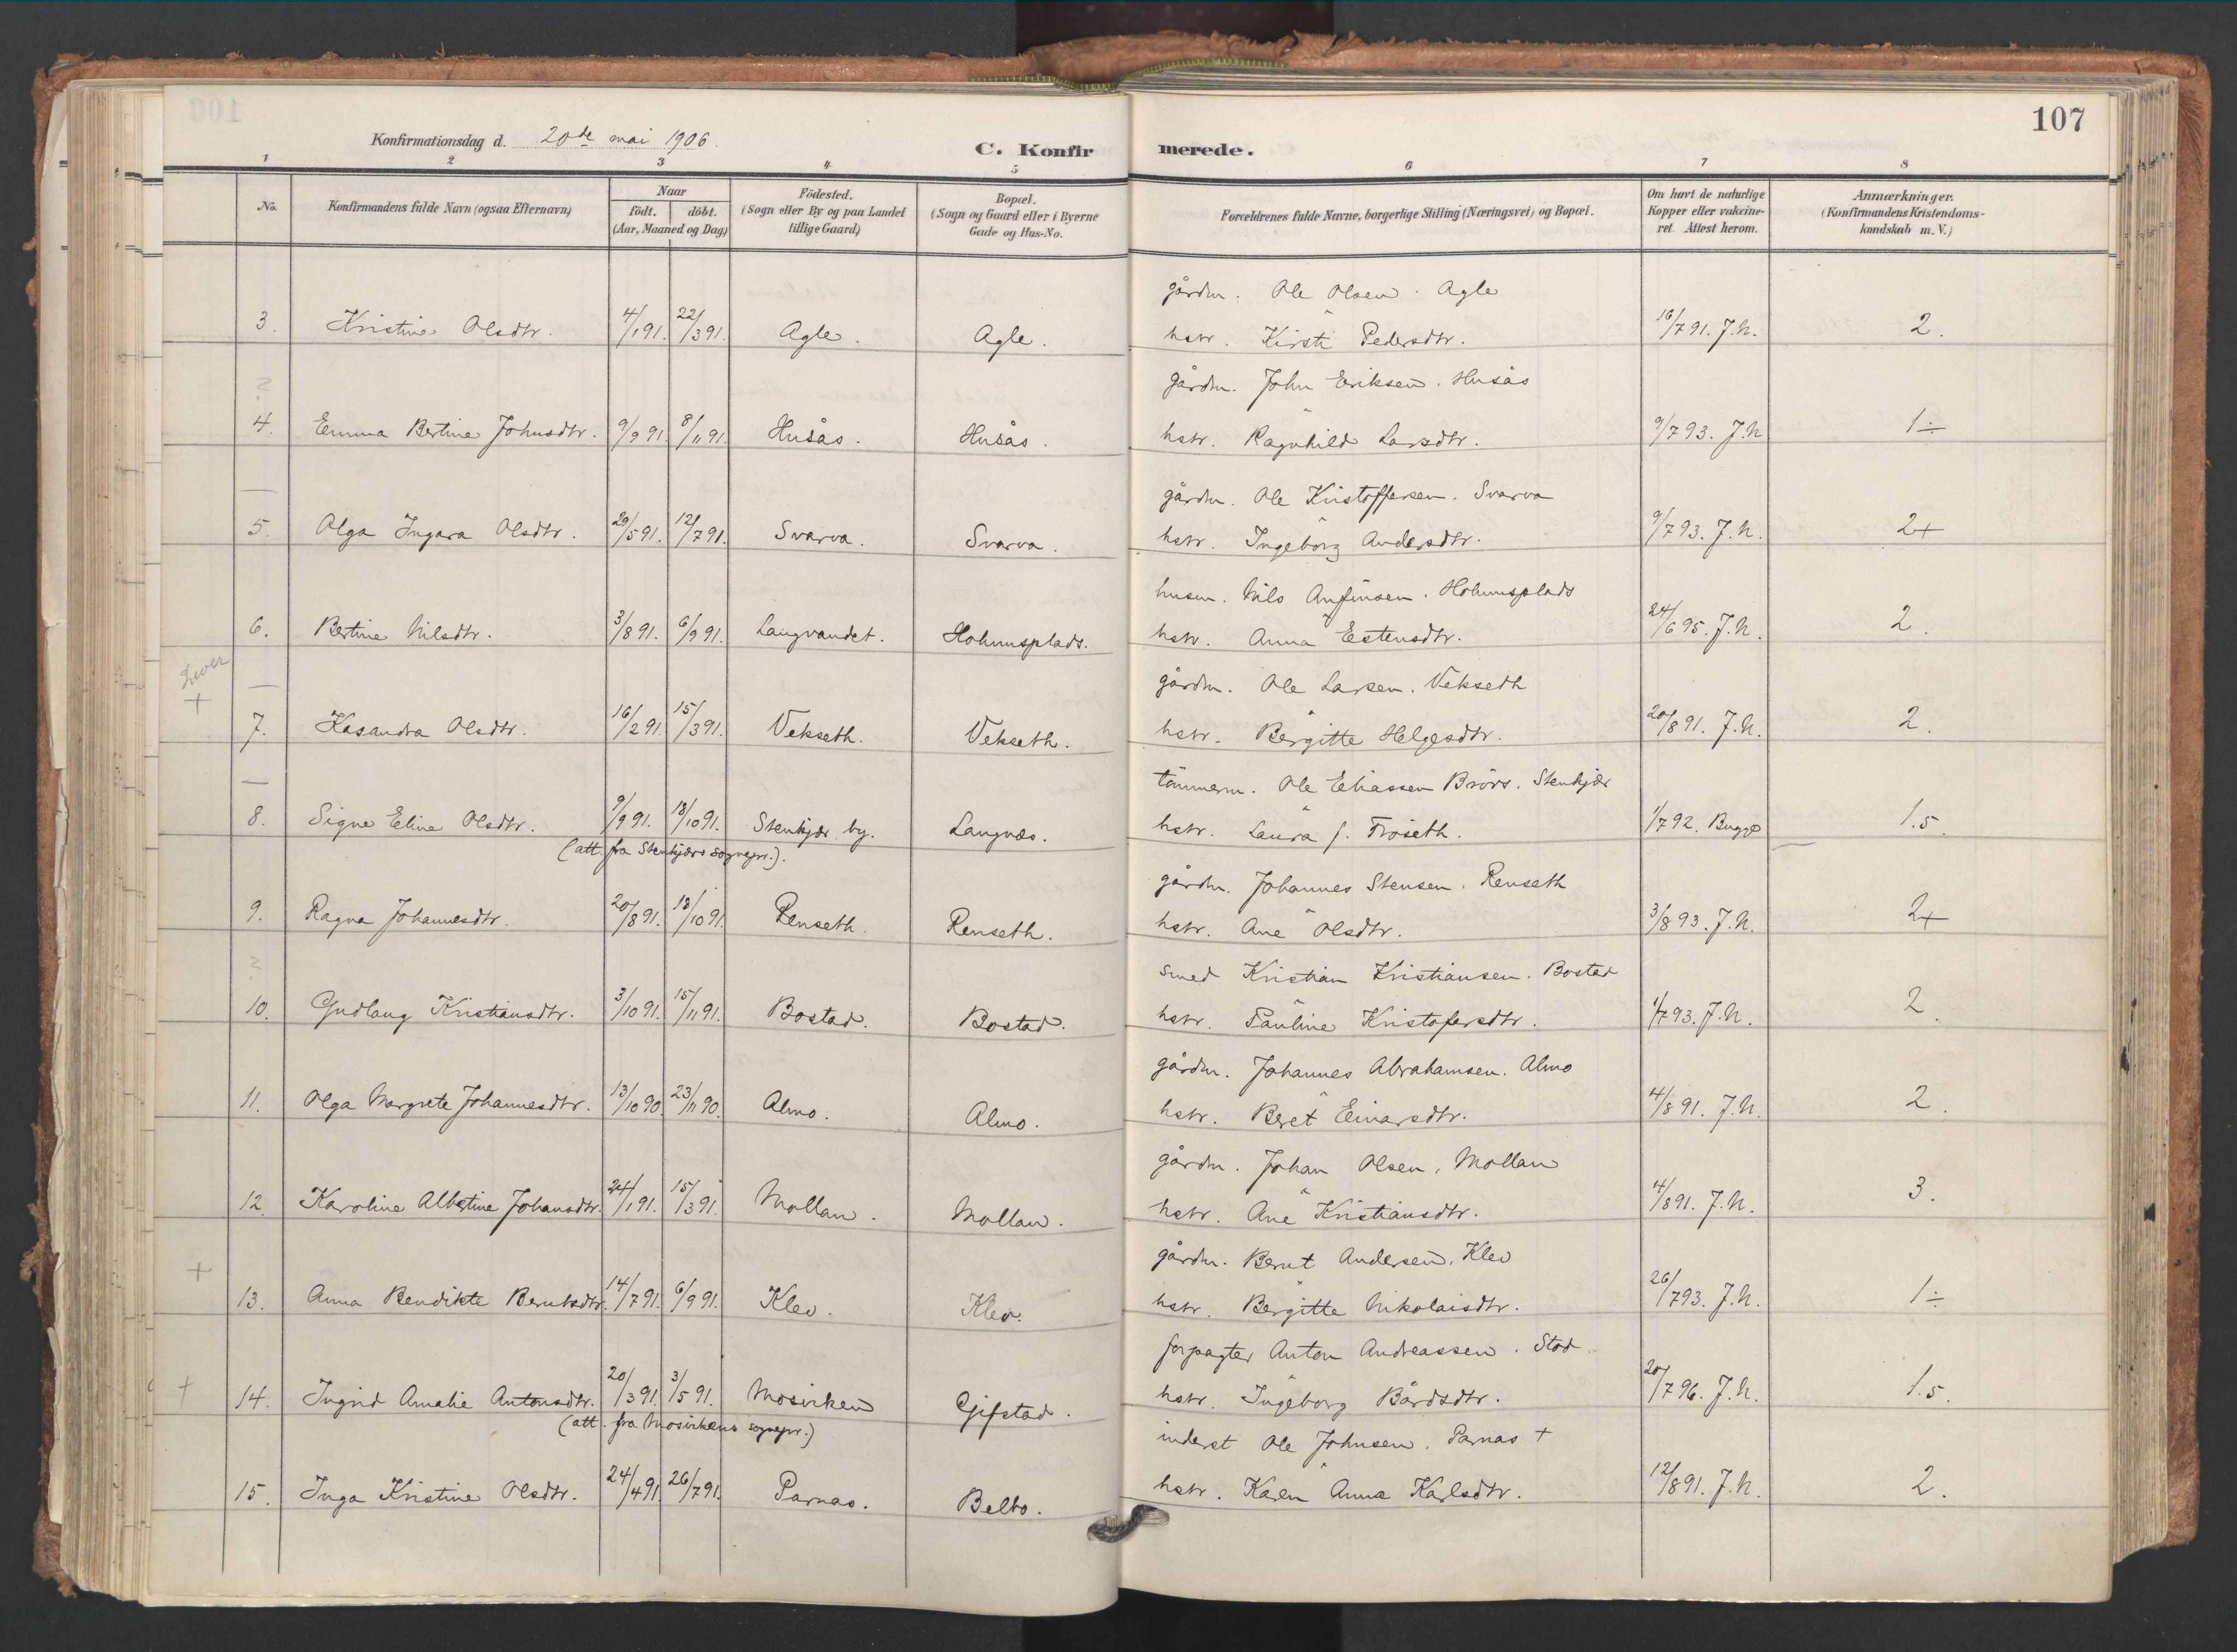 107
Konfirmationsdag d. 20de mai 1906.
C. Konfirmerede.
1 2 3 4 5 6 7 8
No.
Konfirmandens fulde Navn (ogsaa Efternavn)
Naar
födt. döbt.
(Aar, Maaned og Dag)
Födested.
(Sogn eller By og paa Landet
tillige Gaard)
Bopæl.
(Sogn og Gaard eller i Byerne
Gade og Hus-No.
Forældrenes fulde Navne, borgerlige Stilling (Næringsvei) og Bopæl.
Om havt de naturlige
Kopper eller vakcine-
ret. Attest herom.
Anmærkninger.
(Konfirmandens Kristendoms-
kundskab m. V.)
gårdm. Ole Olsen. Agle
3. Kristine Olsdtr. 4/1 91. 22/3 91. Agle. Agle. hstr. Kirsti Pedersdtr. 16/7 91. J.N. 2.
gårdm. John Eriksen. Husås
4. Emma Bertine Johnsdtr. 9/9 91. 8/11 91. Husås. Husås. hstr. Ragnhild Larsdtr. 9/7 93. J.N 1÷
gårdm. Ole Kristoffersen. Svarva
5. Olga Ingara Olsdtr. 29/5 91. 12/7 91. Svarva. Svarva. hstr. Ingeborg Andersdtr. 9/7 93. J.N. 2+
husm. Nils Anfinsen. Holmmsplads
6. Bertine Nilsdtr. 3/8 91. 6/9 91. Langvandet. Holmmsplads. hstr. Anna Estensdtr. 24/6 95. J.N. 2
Lever
+
gårdm. Ole Larsen. Vekseth
7. Kasandra Olsdtr. 16/2 91. 15/3 91. Vekseth. Vekseth. hstr. Bergitte Helgesdtr. 20/8 91. J.N. 2.
tömmerm. Ole Eliassen Brörs. Stenkjær
8. Signe Eline Olsdtr. 9/9 91. 18/10 91. Stenkjær by. Langnes. hstr. Laura f. Fröseth. 1/7 92. Bugge 1.5.
(att. fra Stenkjærs sognepr.).
gårdm. Johannes Stensen. Renseth
9. Ragna Johannesdtr. 20/8 91. 18/10 91. Renseth. Renseth. hstr. Ane Olsdtr. 3/8 93. J.N. 2+
smed Kristian Kristiansen. Bostad
10. Gudlaug Kristiansdtr. 3/10 91. 15/11 91. Bostad. Bostad. hstr. Pauline Kristofersdtr. 1/7 93. J.N. 2
gårdm. Johannes Abrahamsen. Almo
11. Olga Margrete Johannesdtr. 13/10 90. 23/11 90. Almo. Almo. hstr. Beret Einarsdtr. 4/8 91. J.N. 2.
gårdm. Johan Olsen. Mollan
12. Karoline Albertine Johansdtr. 24/1 91. 15/3 91. Mollan. Mollan. hstr. Ane Kristiansdtr. 4/8 91. J.N. 3.
+
gårdm. Bernt Andersen, Klev
13. Anna Bendikte Berntsdtr. 14/7 91. 6/9 91. Klev. Klev. hstr. Bergitte Nikolaisdtr. 26/7 93. J.N. 1÷
forpagter Anton Andreassen. Stod
+ 14. Ingrid Amalie Antonsdtr. 20/3 91. 3/5 91. Mosviken Gifstad. hstr. Ingeborg Bårdsdtr. 20/7 96. J.N. 1.5.
(att. fra Mosvikens sognepr.)
inderst Ole Johnsen. Parnas +
15. Inga Kristine Olsdtr. 24/4 91. 26/7 91. Parnas. Belbo. hstr. Karen Anna Karlsdtr. 12/8 91. J.N. 2.